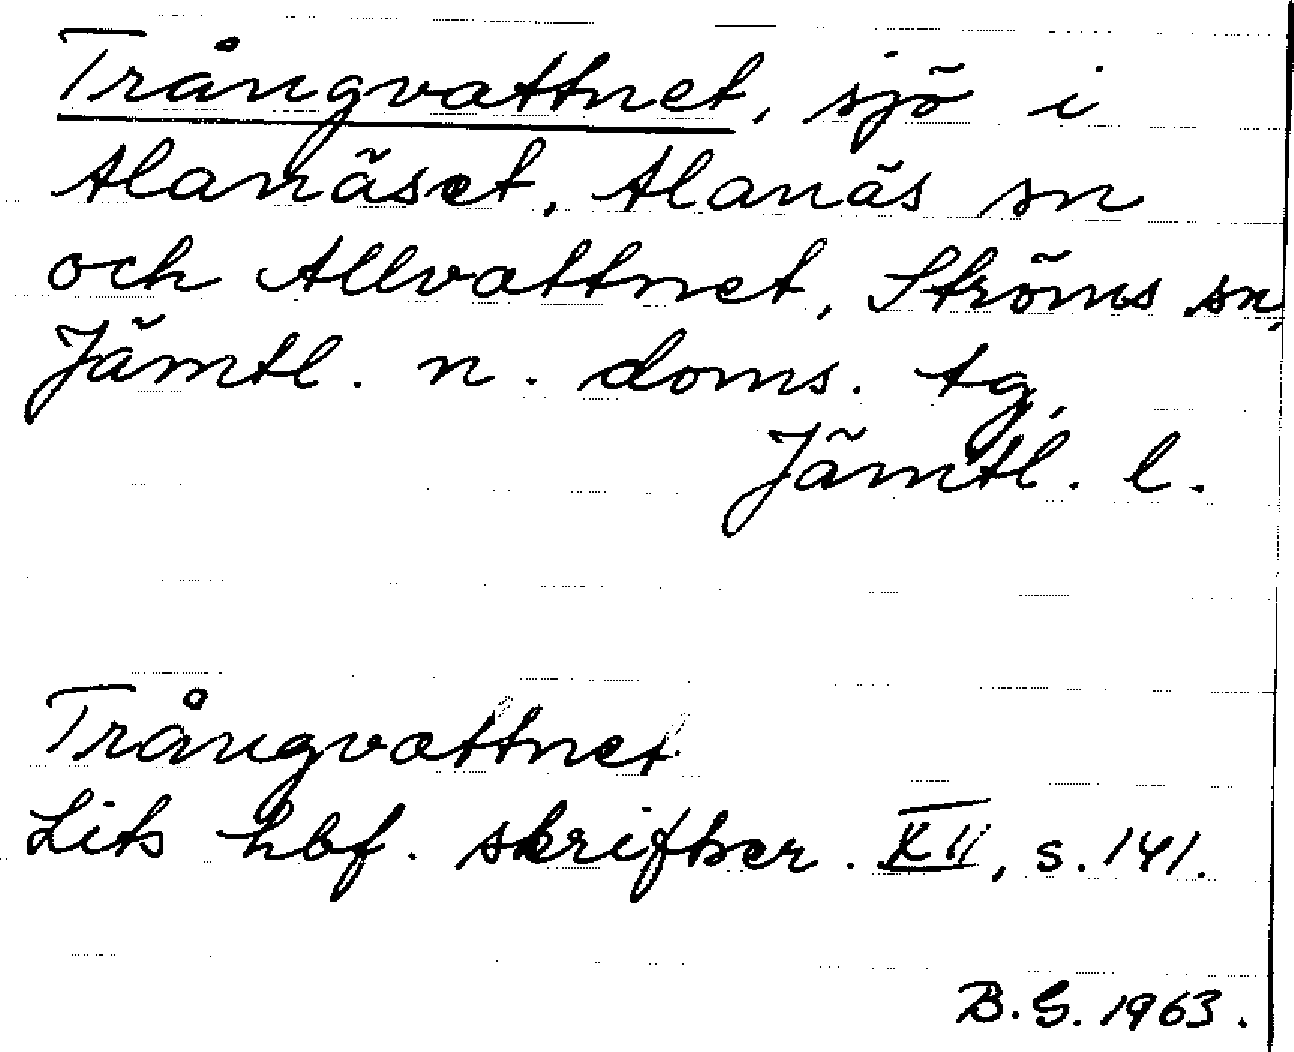 Trångvattnet, sjö i
Alanäset, Alanäs sn
och Allvattnet, Ströms sn,
Jämtl. n. doms. tg,
Jämtl. l.
Trångvattnet
Lits hbf. skrifter. XII, s. 141.
B.G. 1963.